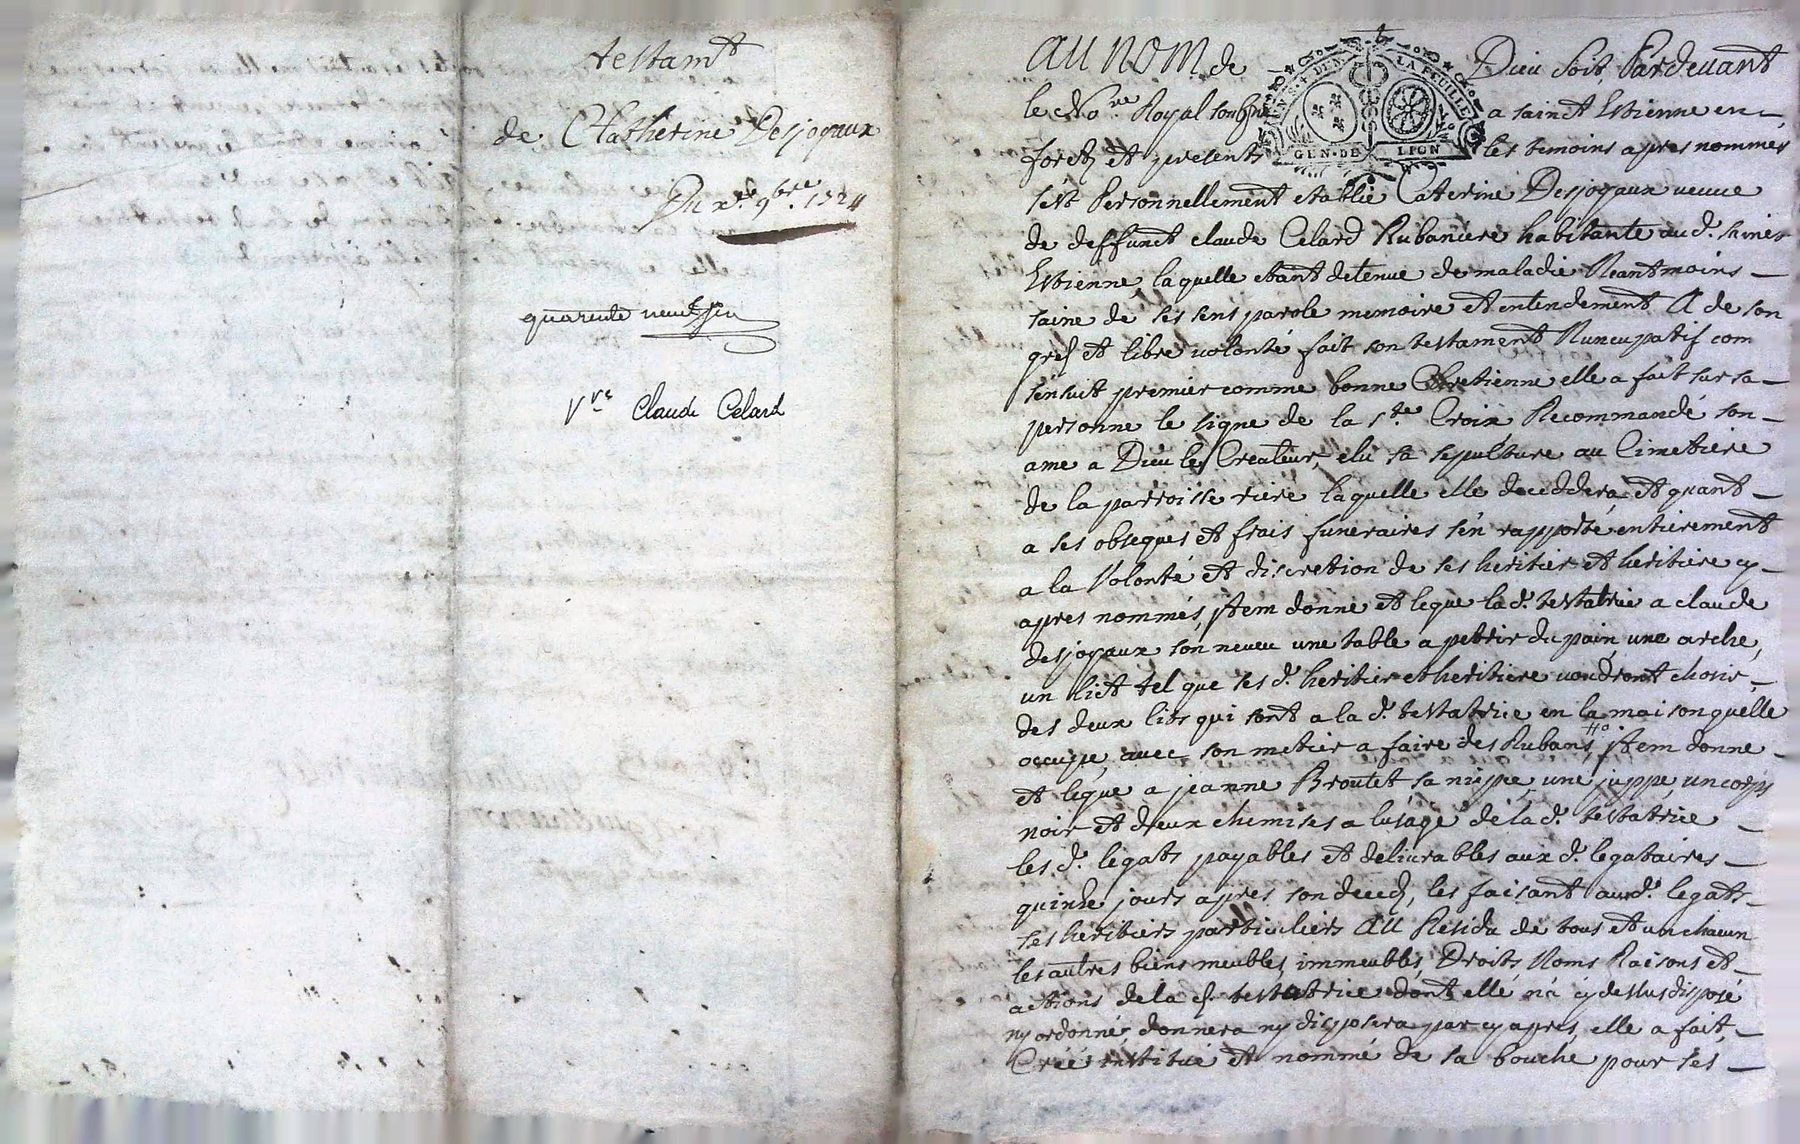 testam^t
de Catherine Desjoyaux
Du x^e. 9^bre. 1724
quarente neuf
V^ve Claude Celard
AU NOM de Dieu soit, Pardevant
EN S. DEN. LA FEUILLE
GEN. DE LION
le No^re. Royal soub^né a sainct Estienne en
foretz et presents les temoins apres nommés
s'est Personnellement establie Caterine Desjoyaux veuve
de deffunct claude Celard Rubaniere habitante aud. sainct
Estienne, laquelle etant detenue de maladie Neantmoins
saine de ses sens parole memoire et entendement A de son
gré et libre volonté fait son testament Nuncupatif com
s'ensuit premier comme bonne Chretienne elle a fait sur sa
personne le signe de la s^te. Croix Recommandé son
ame a Dieu le Createur, elu sa sepulture au Cimetiere
de la parroisse riere laquelle elle deceddera, et quant
a ses obseques et frais funeraires s'en rapporte entierement
a la Volonté et discretion de ses heritier et heritiere cy
apres nommés, Item donne et legue la d. testatrice a claude
desjoyaux son neveu une table a petrir du pain, une arche,
un lict tel que ses d. heritier et heritiere voudront choisir,
des deux lits qui sont a la d. testatrice en la maison quelle
occupe, avec son metier a faire des Rubans, Item donne
et legue a jeanne Broutet sa niepce, une juppe, un corps
noir et deux chemises a lusage de la d. testatrice
les d. legats payables et delivrables aux d. legataires
quinze jours apres son decedz, les faisant aux d. legats
ses heritiers particuliers AU Residu de tous et un chacun
les autres biens meubles, immeubles, Droits, Noms Raisons et
actions de la d. testatrice dont elle n'a cy dessus disposé
ny ordonné, donnera ny disposera par cy apres, elle a fait,
Creé institué et nommé de sa bouche pour ses